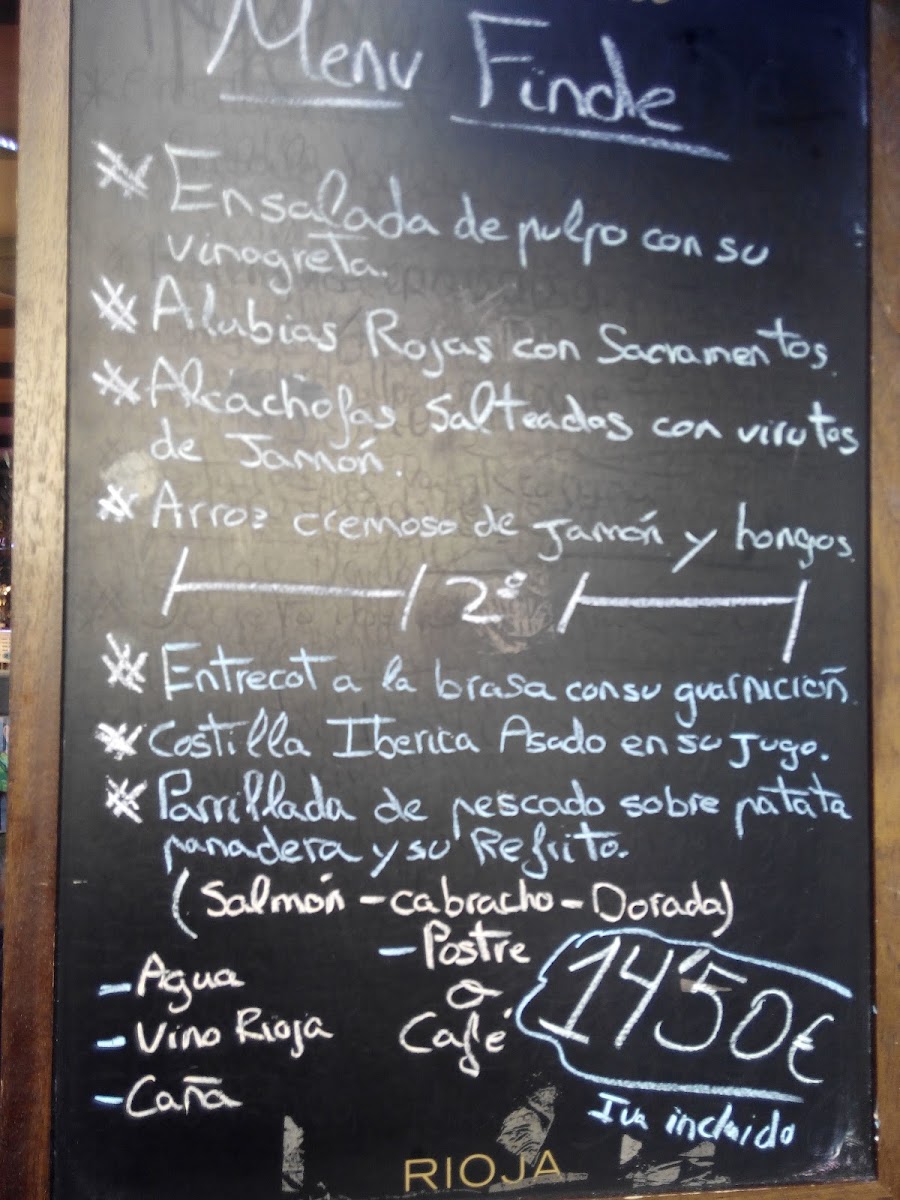 Menu Finde
* Ensalada de pulpo con su
vinagreta.
* Alubias Rojas con Sacramentos.
* Alcachofas Salteadas con virutas
de Jamón.
* Arroz cremoso de Jamón y hongos
2º
* Entrecot a la brasa con su guarnición
* Costilla Iberica Asado en su Jugo.
* Parrillada de pescado sobre patata
panadera y su Refrito.
(Salmón - cabracho - Dorada)
- Agua
- Vino Rioja
- Caña
- Postre
o
Café
14'50€
Iva incluido
RIOJA